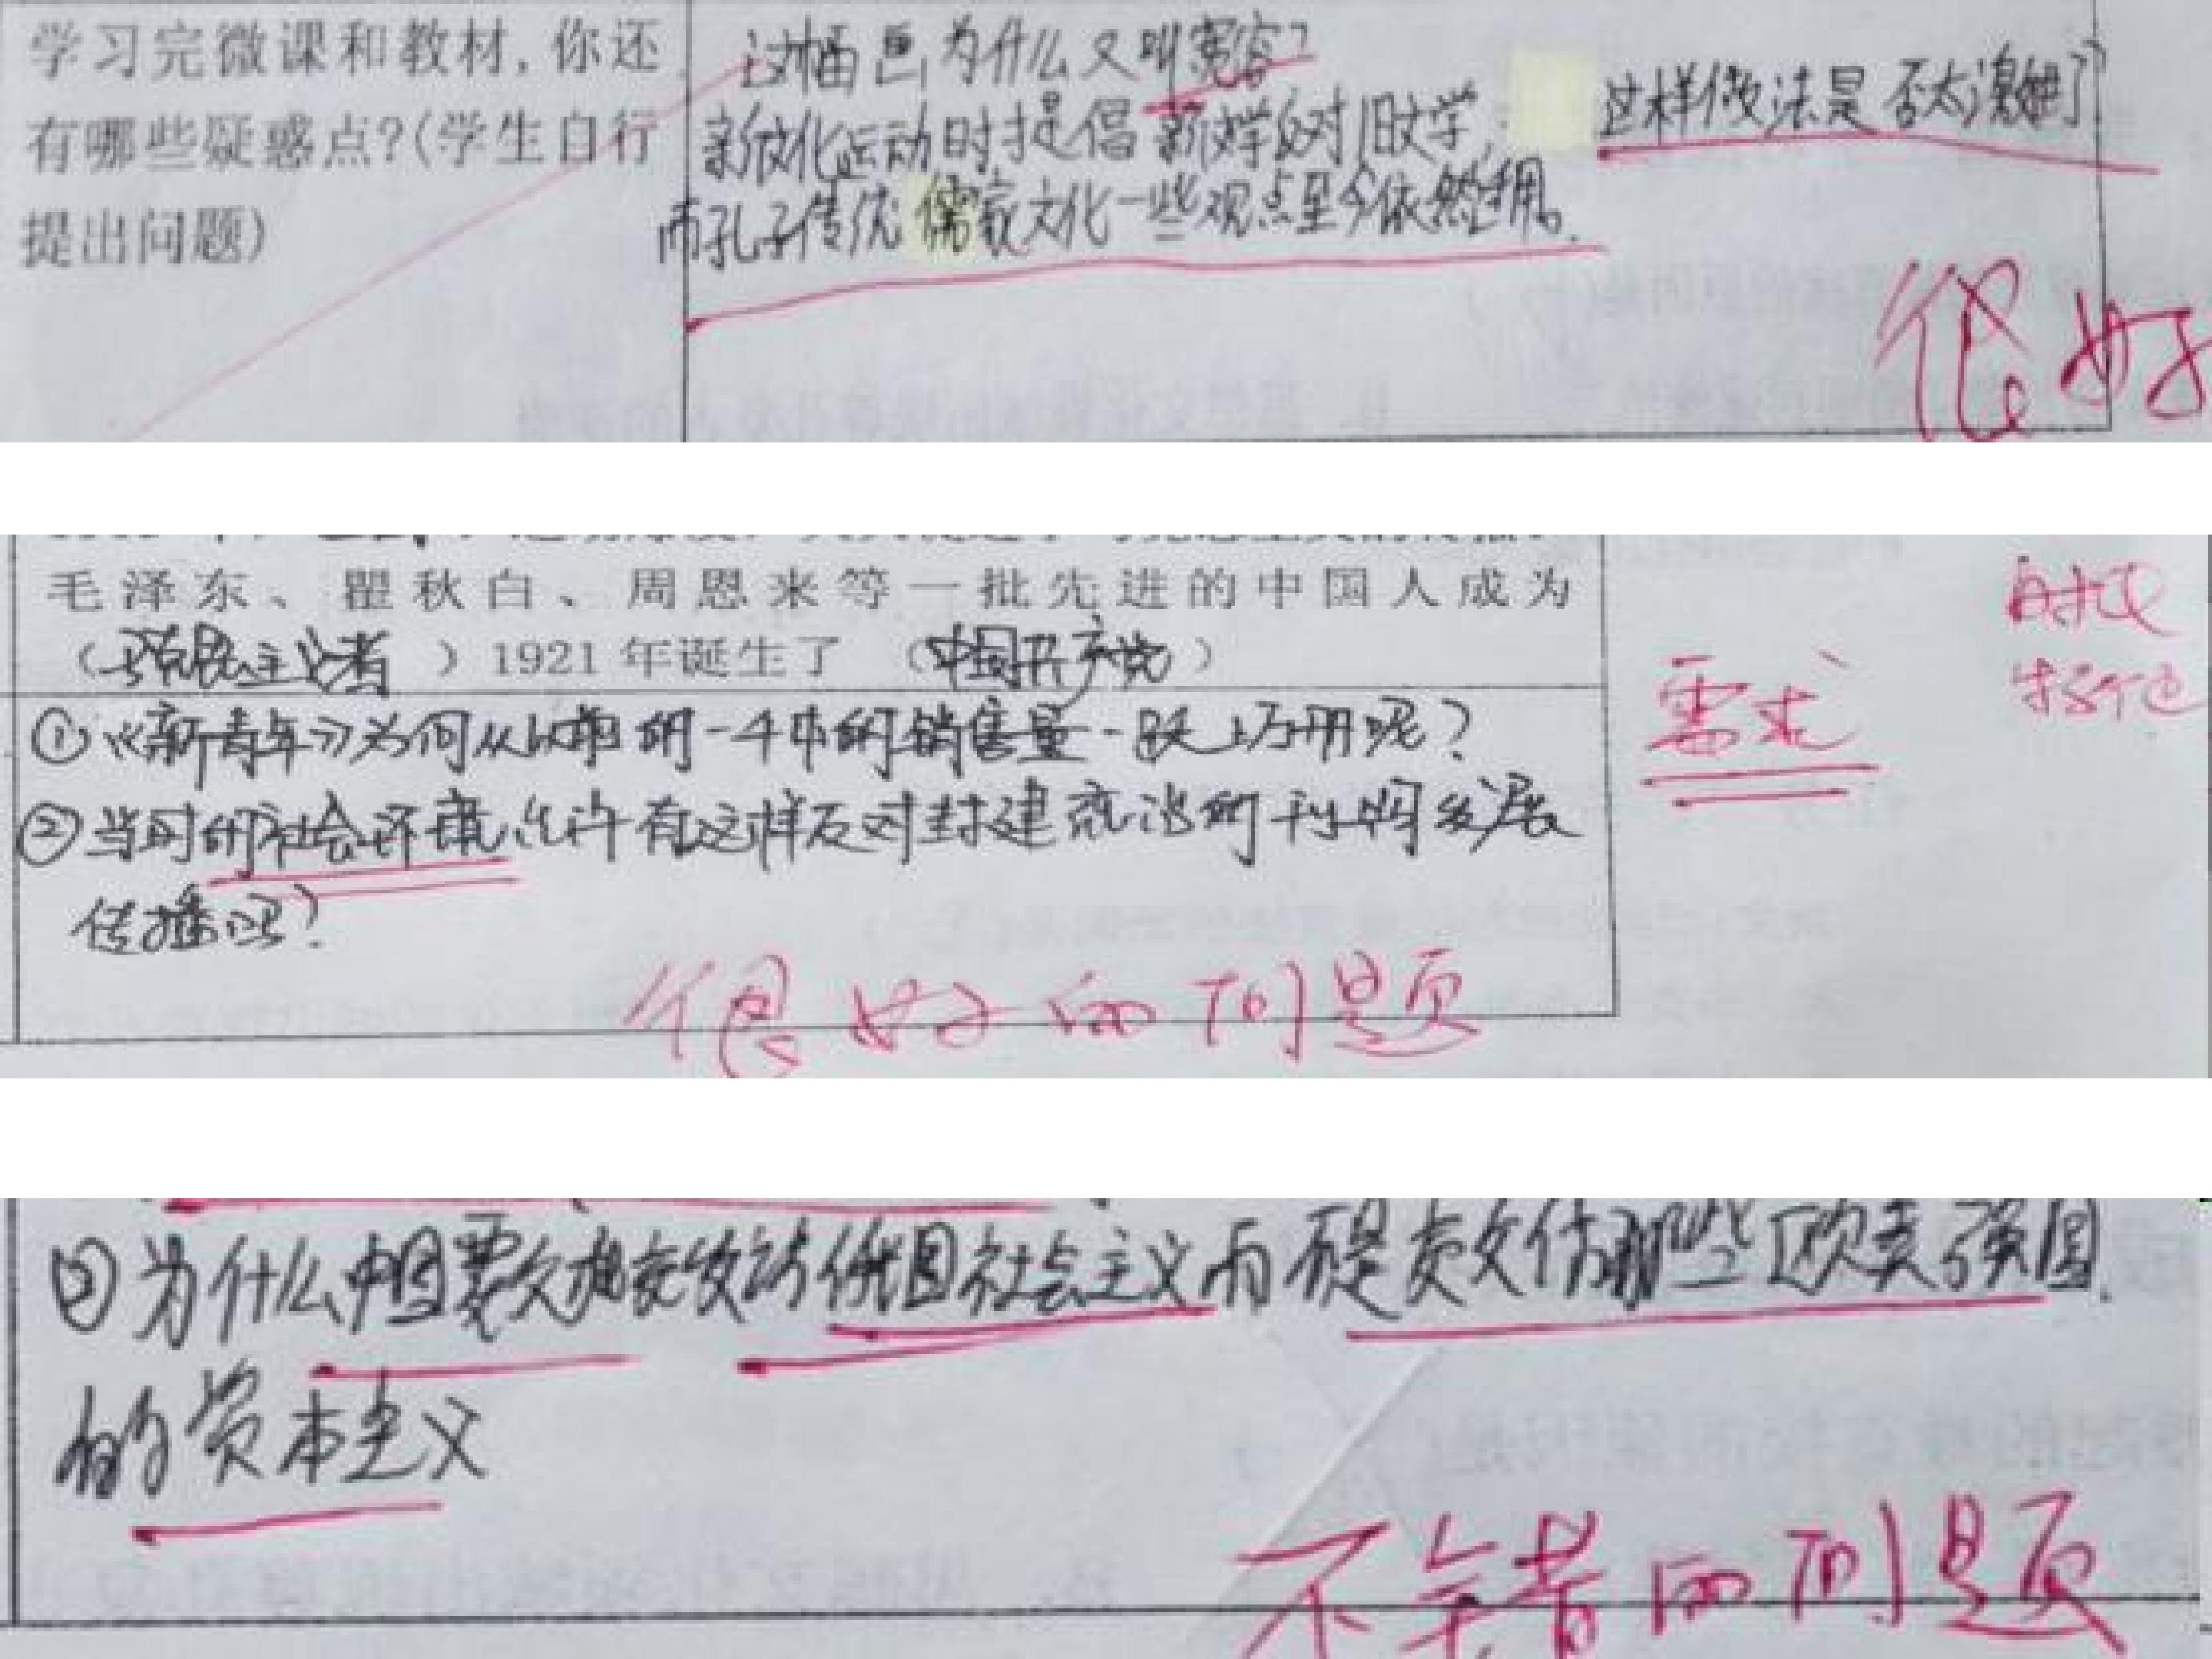 学习完微课和教材，你还
有哪些疑惑点？（学生自行
提出问题）
这幅画为什么又叫宽容？
新文化运动时提倡新文学反对旧文学，
而孔子传统儒家文化一些观点至今依然
这样做法是否太
很好
毛泽东、瞿秋白、周恩来等一批先进的中国人成为
（主义者）1921年诞生了（中国共产党）
①《新青年》为何从的一千本的销售量一跃上万册呢？
②当时的社会环境允许有这样反对封建统治的刊物发展
传播吗？
需求
时代
特色
很好的问题
②为什么中国要效仿俄国社会主义而不是效仿那些欧美强国
的资本主义
不错的问题